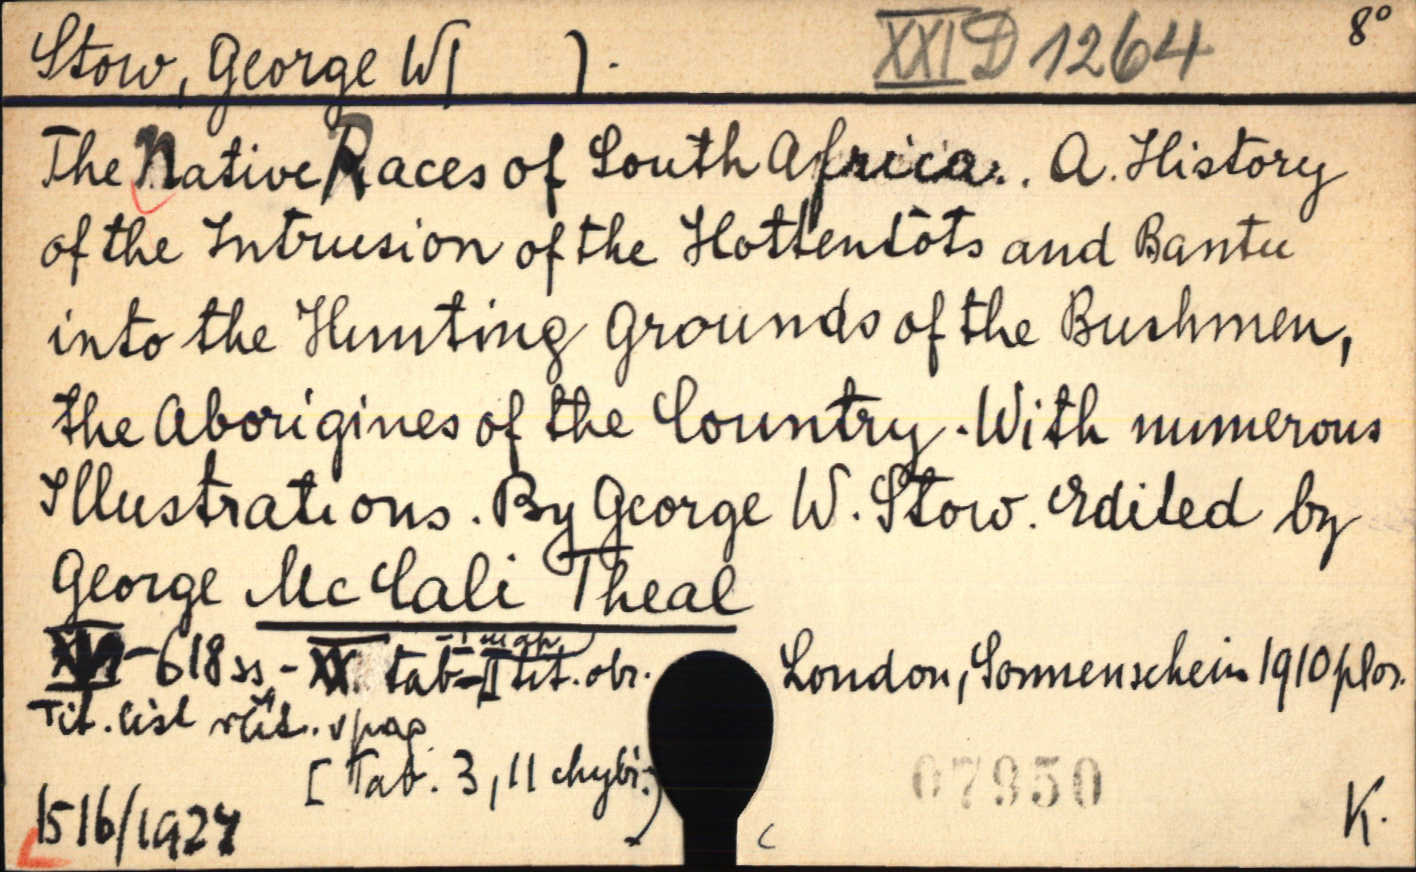 Stow, George W( ). XXI D 1264 8°
The Native Races of South Africa. A. History
of the Intrusion of the Hottentots and Bantu
into the Hunting Grounds of the Bushmen,
the Aborigines of the Country. With numerous
Illustrations. By George W. Stow. Edited by
George Mc Cali Theal
-618 ss - XX tab - II tit. obr.
-1 map
London, Sonnenschein 1910
Tit. list v pag.
[Tab. 3, 11 chybí.]
07950
1516/1927 K.